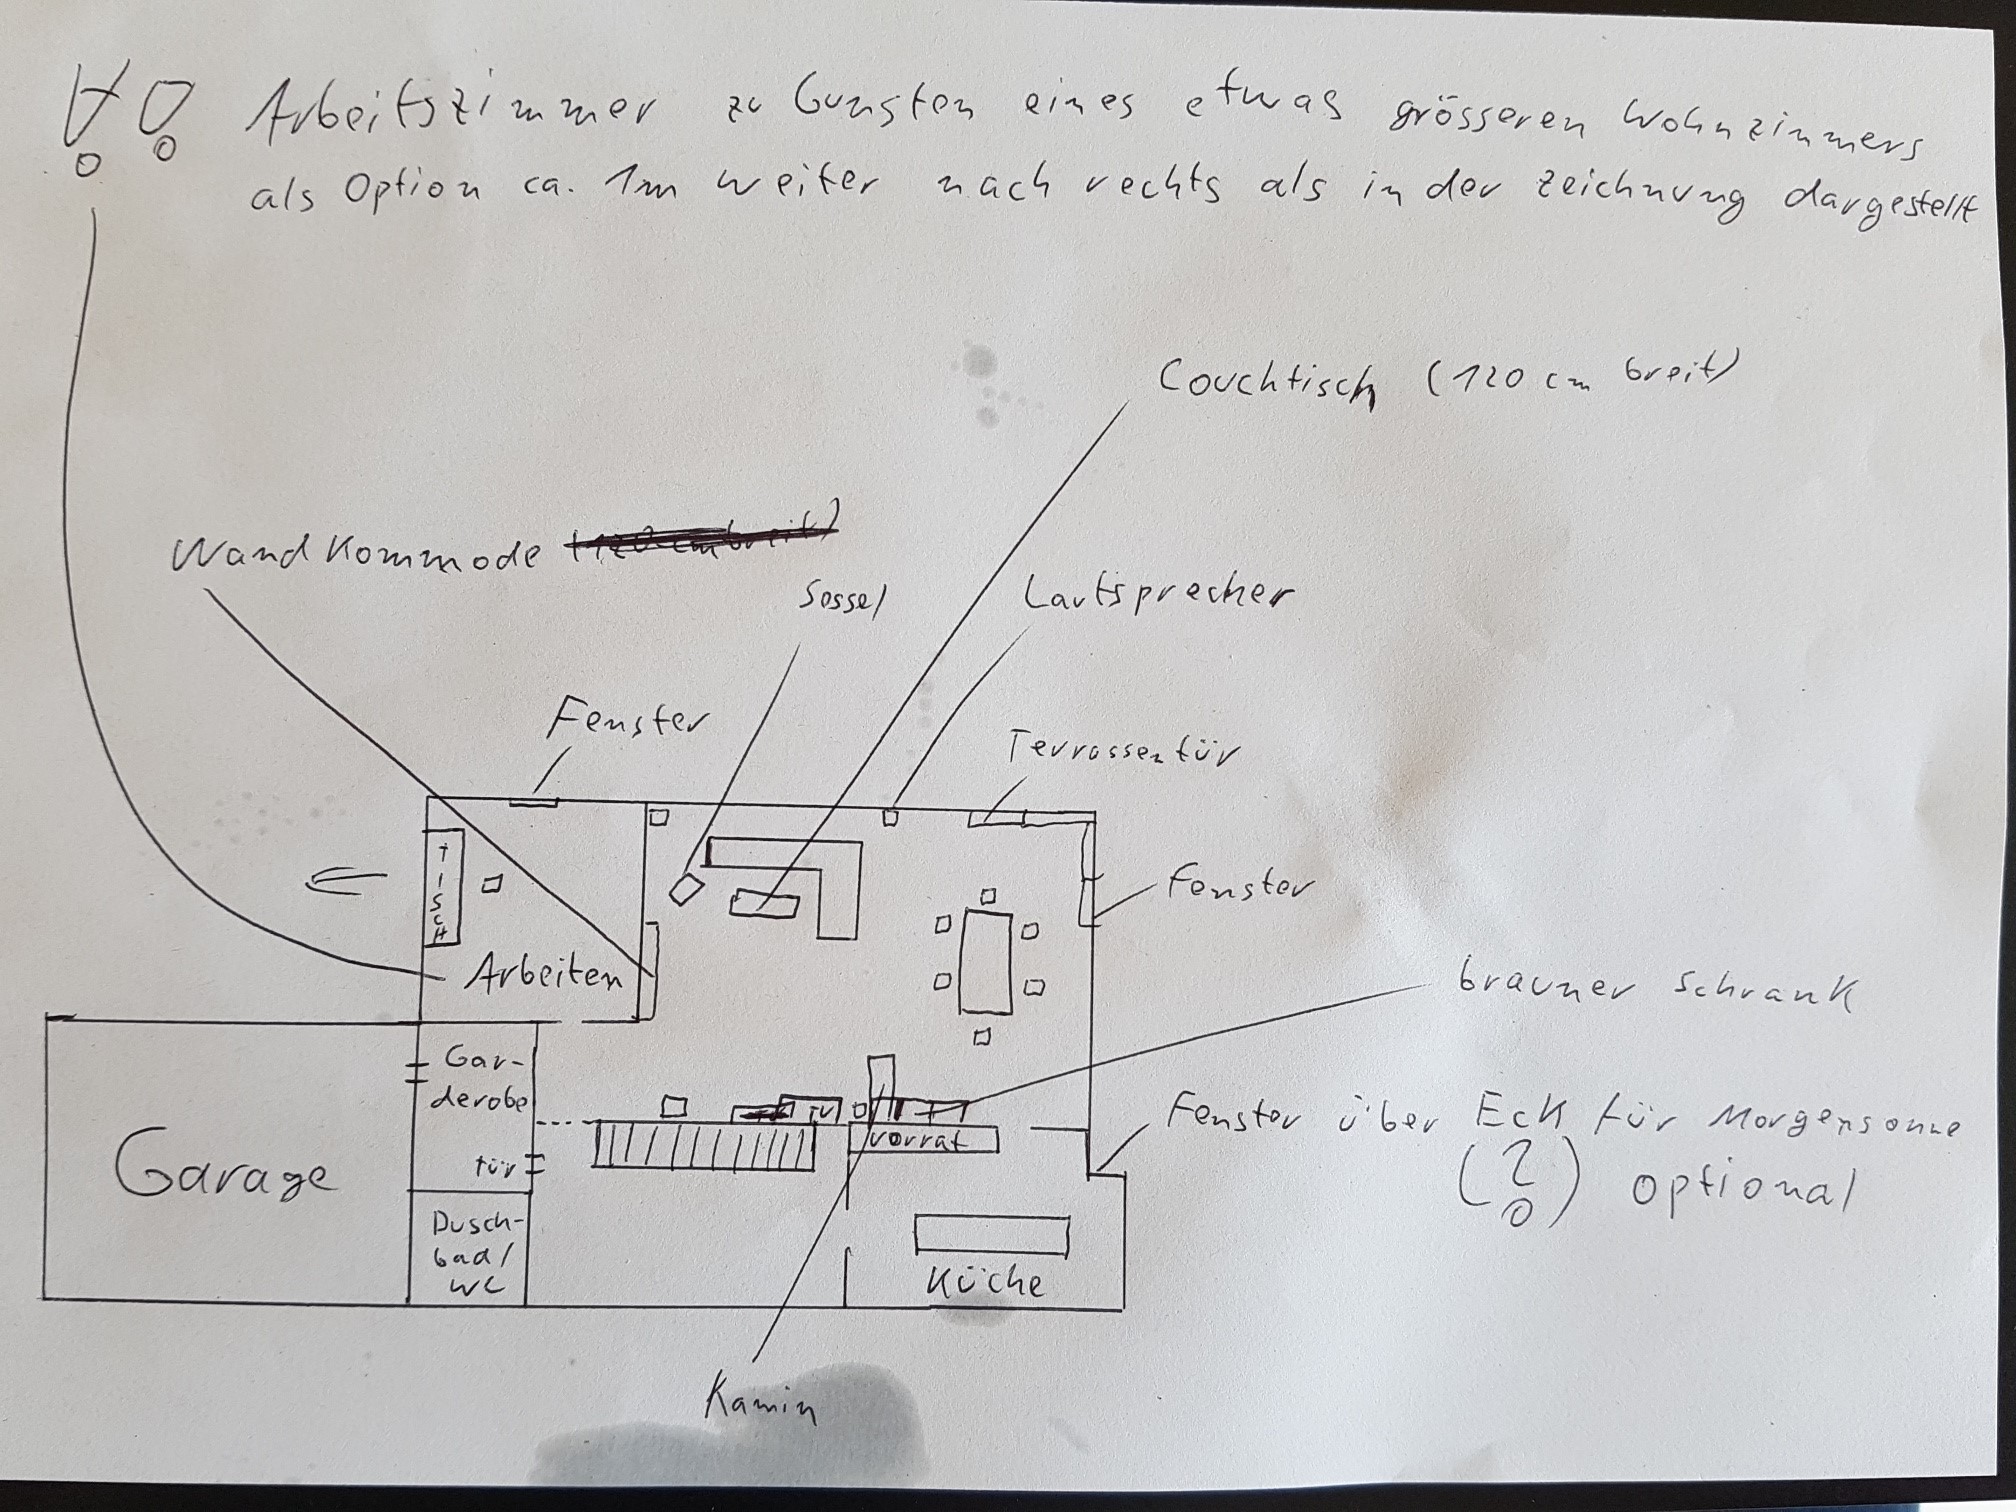 !! Arbeitszimmer zu Gunsten eines etwas grösseren Wohnzimmers
als Option ca. 1m weiter nach rechts als in der Zeichnung dargestellt
Couchtisch (120 cm breit)
Wandkommode (120 cm breit)
Sessel
Lautsprecher
Fenster
Terrassentür
TISCH
Fenster
Arbeiten
brauner Schrank
Gar-
derobe
TV
Vorrat
Fenster über Eck für Morgensonne
(?) optional
Garage
tür
Dusch-
bad/
WC
Küche
Kamin